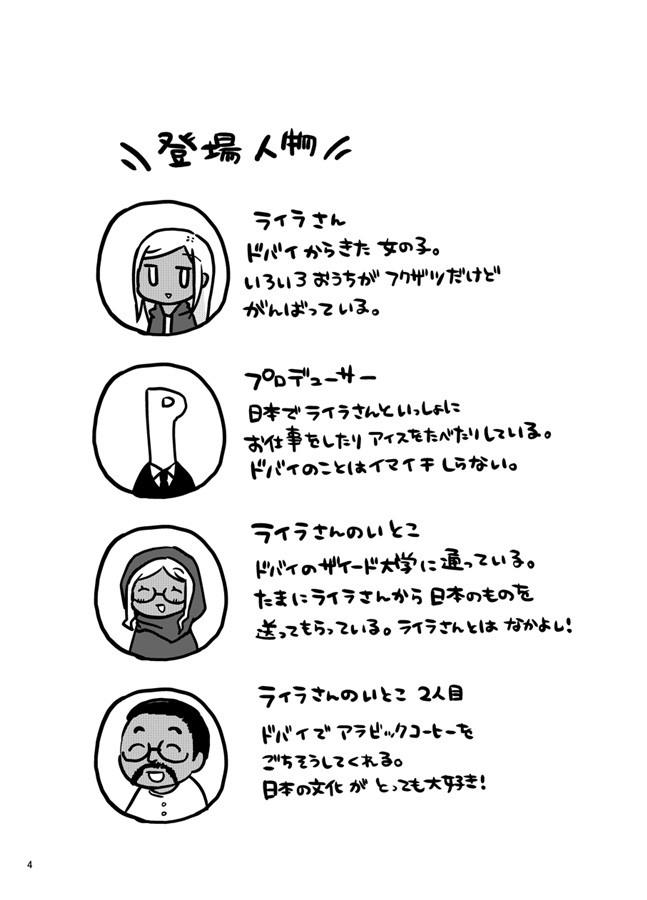 登場人物
ライラさん
ドバイからきた女の子。
いろいろおうちがフクザツだけど
がんばっている。
プロデューサー
日本でライラさんといっしょに
お仕事をしたりアイスをたべたりしている。
ドバイのことはイマイチしらない。
ライラさんのいとこ
ドバイのザイード大学に通っている。
たまにライラさんから日本のものを
送ってもらっている。ライラさんとはなかよし!
ライラさんのいとこ 2人目
ドバイでアラビックコーヒーを
ごちそうしてくれる。
日本の文化がとっても大好き!
P
4